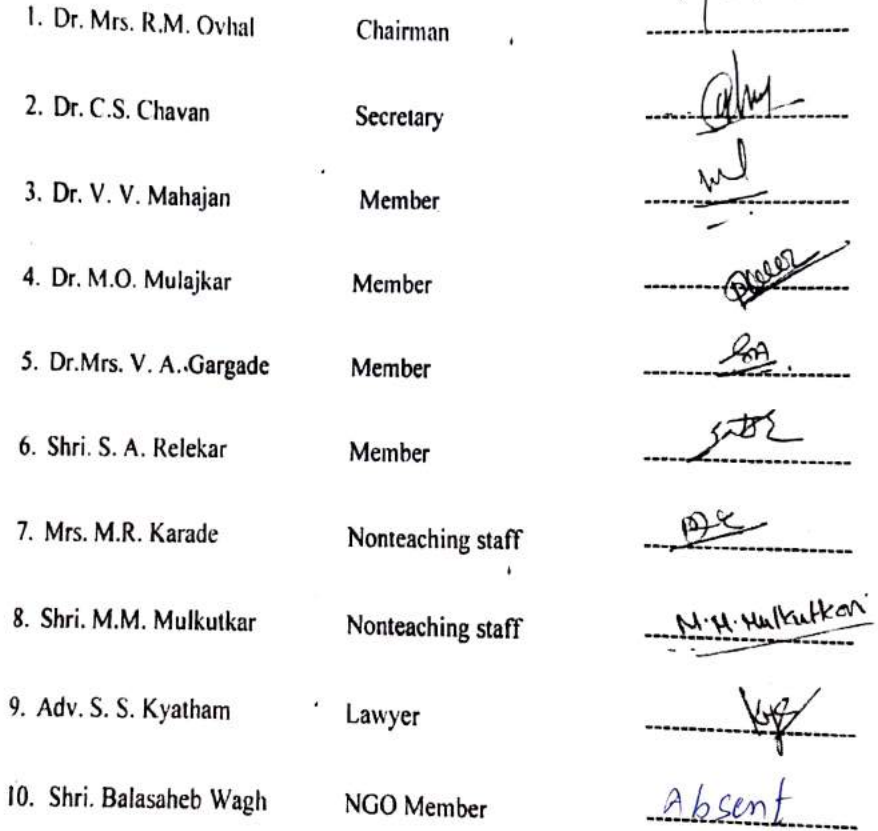 1. Dr. Mrs. R.M. Ovhal Chairman
2. Dr. C.S. Chavan Secretary
3. Dr. V. V. Mahajan Member
4. Dr. M.O. Mulajkar Member
5. Dr.Mrs. V. A..Gargade Member
6. Shri. S. A. Relekar Member
7. Mrs. M.R. Karade Nonteaching staff
8. Shri. M.M. Mulkutkar Nonteaching staff M.M. Mulkutkar
9. Adv. S. S. Kyatham Lawyer
10. Shri. Balasaheb Wagh NGO Member Absent